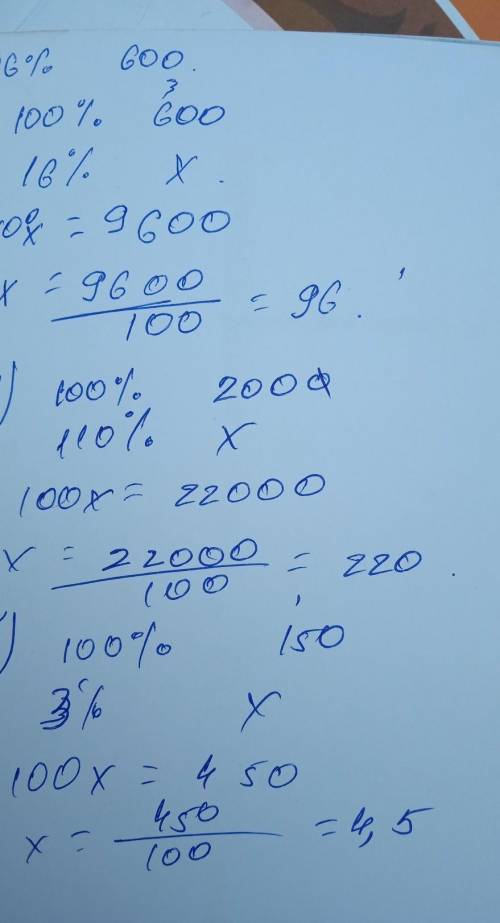 6% 600.
100% 600
16% x.
00x = 9600
x = 9600/100 = 96.
) 100% 200
110% x
100x = 22000
x = 22000/100 = 220.
) 100% 150
3% x
100x = 450
x = 450/100 = 4,5